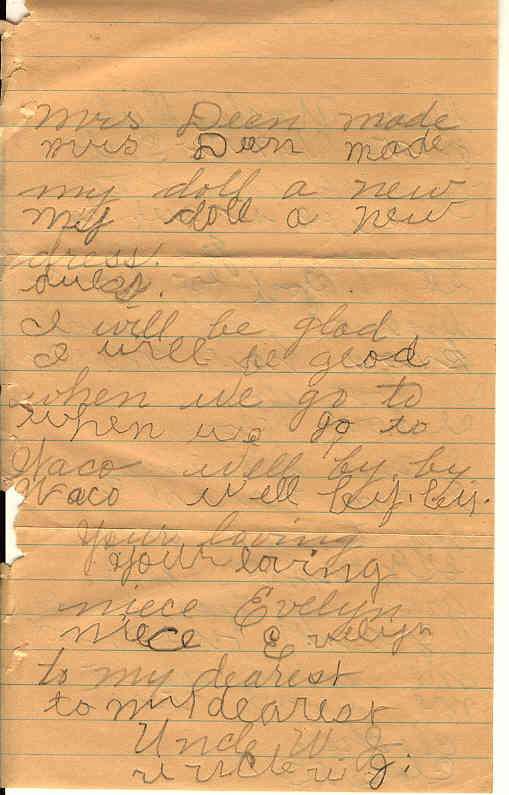 Mrs Dean made
mrs Dean made
my doll a new
my doll a new
dress.
dress.
I will be glad
I will be glad
when we go to
when we go to
Waco well by. by
Waco well by. by.
Your loving
your loving
niece Evelyn
niece Evelyn
to my dearest
to my dearest
Uncle W J
uncle w J.